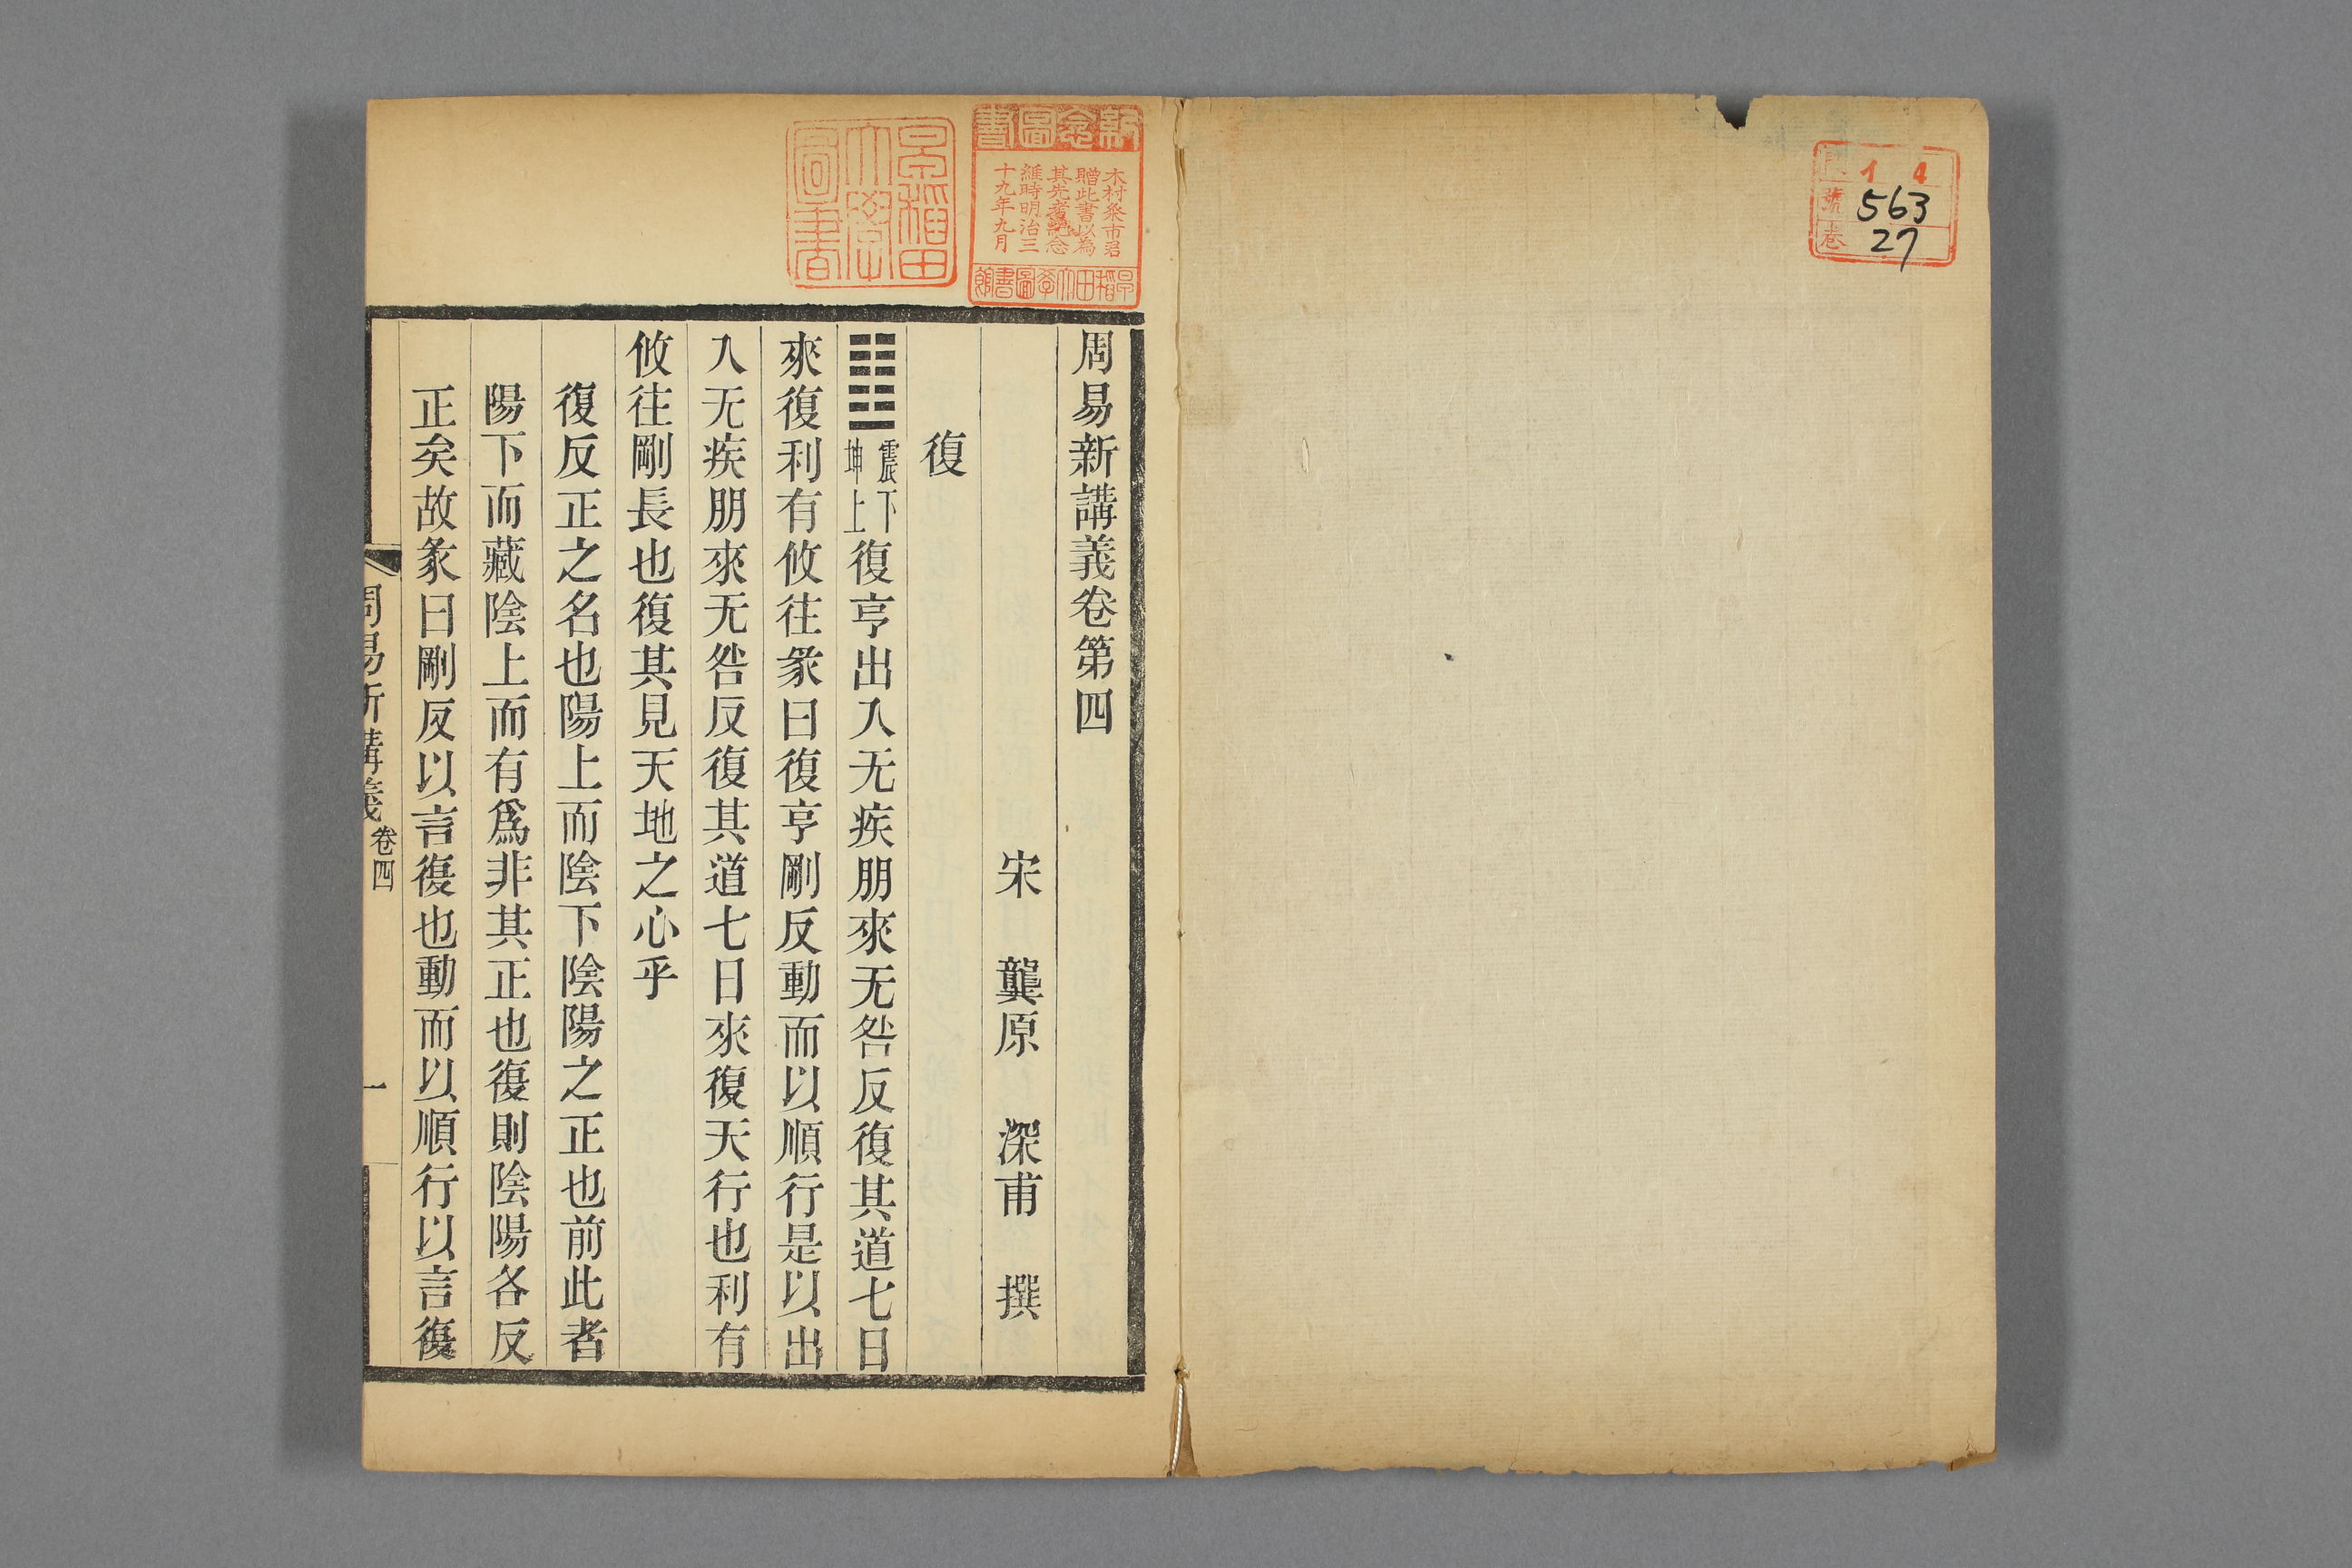 1 4
號 563
卷 27
新念圖書
木村粂市君
贈此書以為
其先考紀念
維時明治三
十九年九月
早稻田大學圖書館
早稻田
大學
圖書
周易新講義卷第四
宋 龔原 深甫 撰
復
䷗震下坤上復亨出入无疾朋來无咎反復其道七日
來復利有攸往彖曰復亨剛反動而以順行是以出
入无疾朋來无咎反復其道七日來復天行也利有
攸往剛長也復其見天地之心乎
復反正之名也陽上而陰下陰陽之正也前此者
陽下而藏陰上而有爲非其正也復則陰陽各反
正矣故彖曰剛反以言復也動而以順行以言復
周易新講義 卷四 一